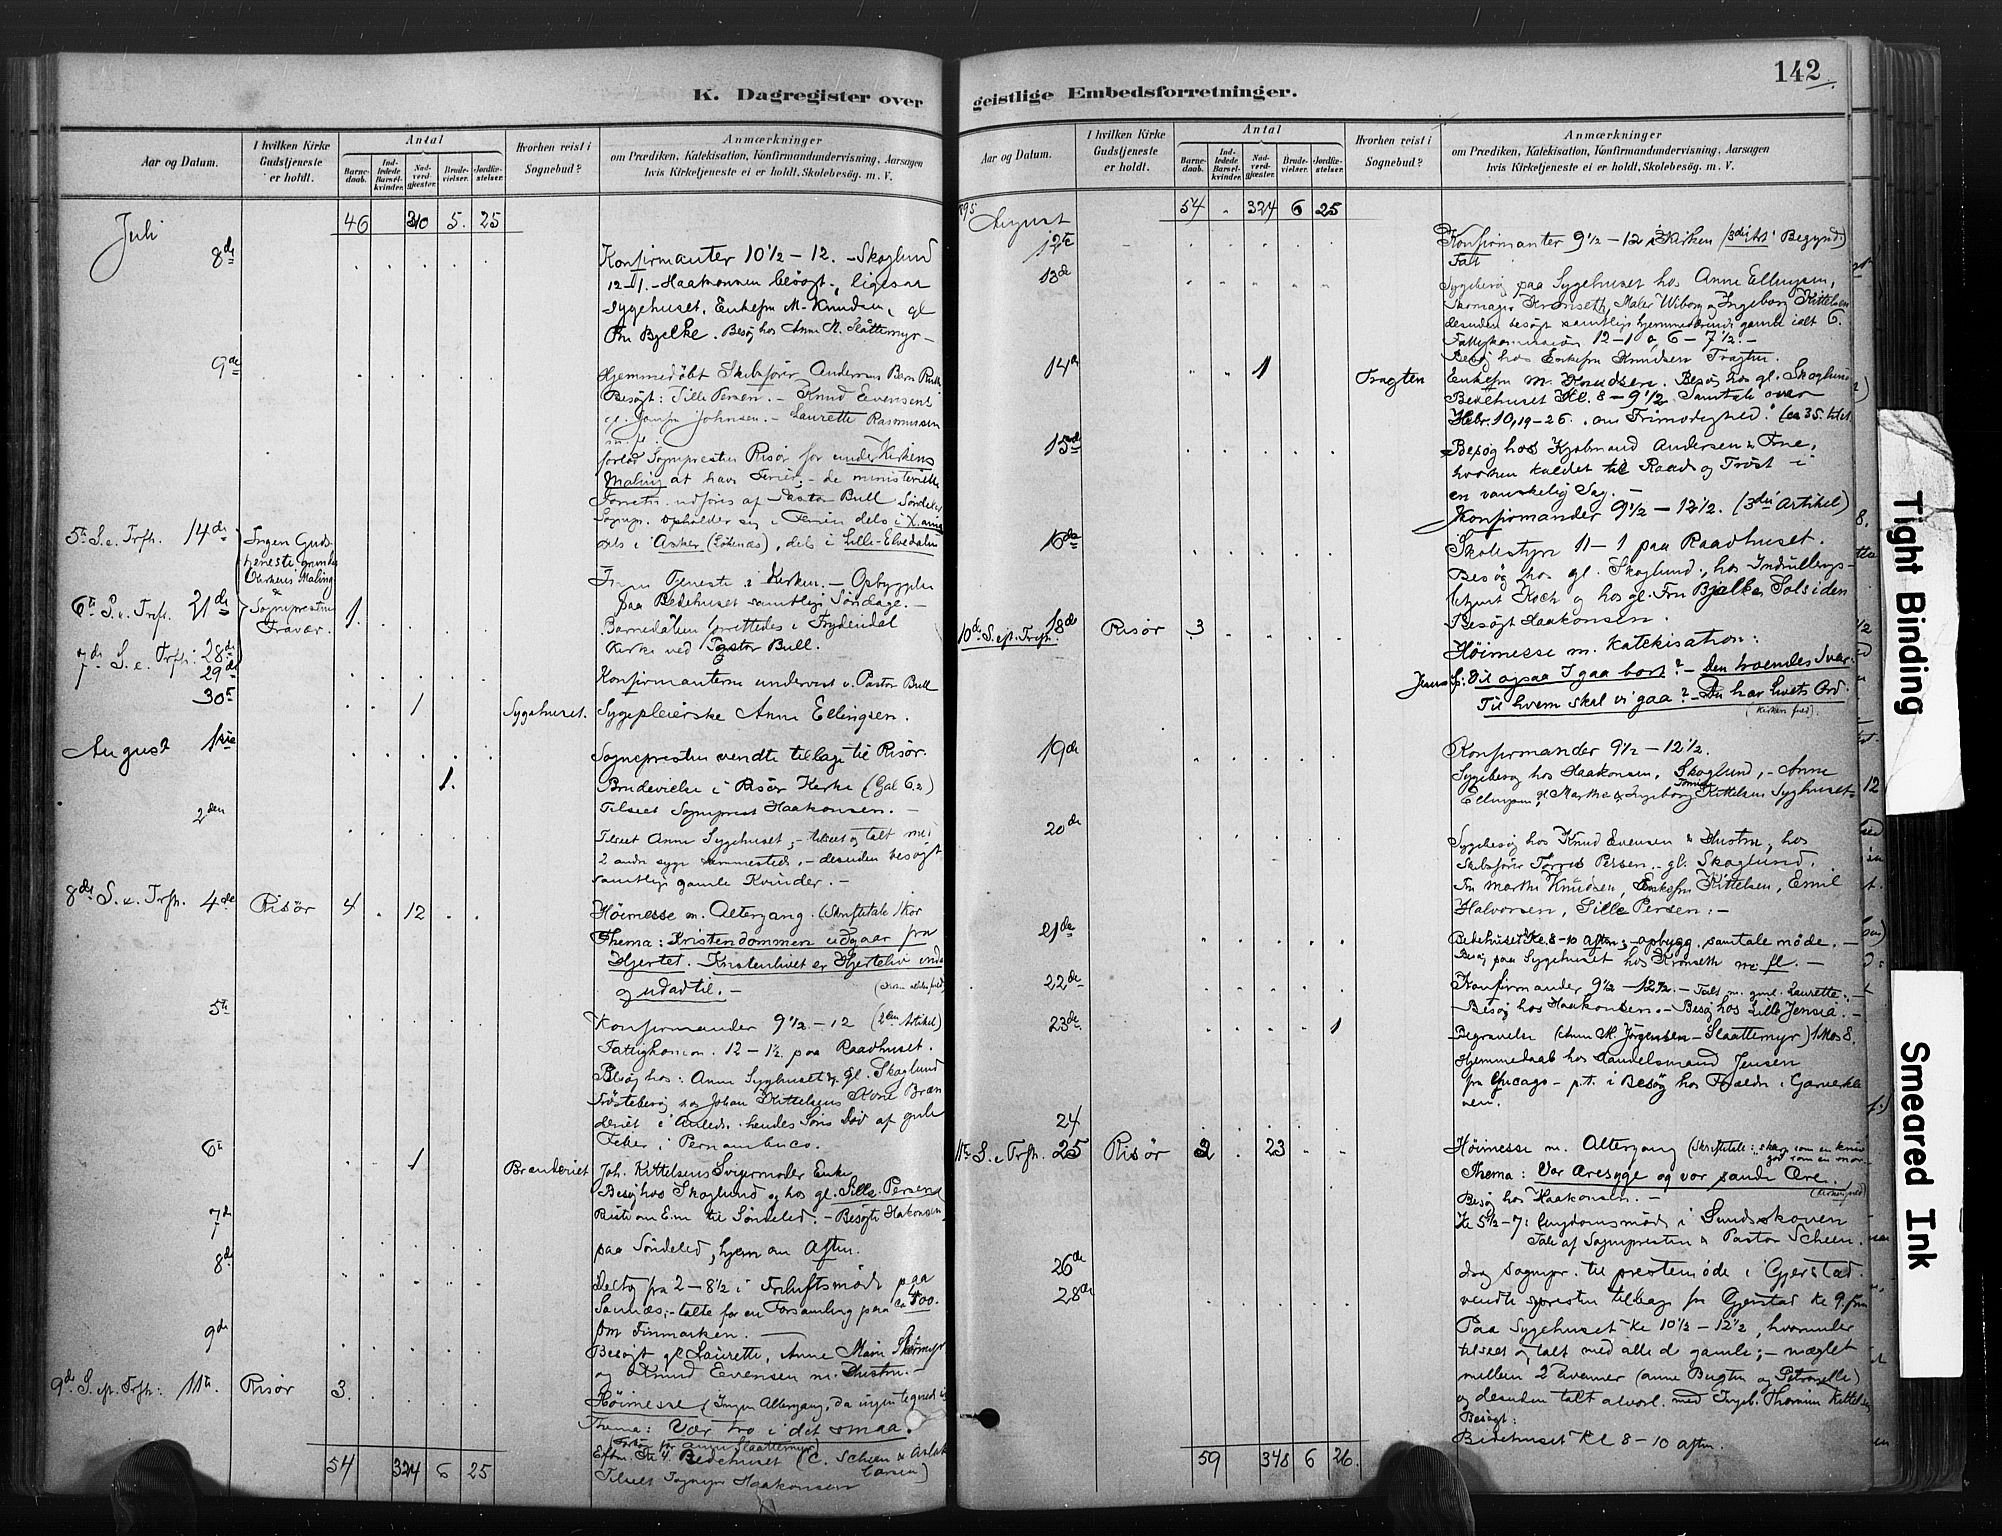 142
K. Dagregister over
Aar og Datum.
I hvilken Kirke Gudstjeneste er holdt.
Antal
Barnedaab.
Indledede Barselkvinder.
Nadverdgjæster.
Brudevielser.
Jordfæstelser.
Hvorhen reist i Sognebud?
Anmærkninger
om Prædiken, Katekisation, Konfirmandundervisning, Aarsagen
hvis Kirketjeneste ei er holdt, Skolebesøg. m. V.
46 310 5. 25
Juli
8de
Konfirmanter 10 1/2 – 12. – Skoglund
Haakonsen besøgt, ligesaa
Sygehuset, Enkefru M. Knudsen, gl
Fru Bjelke. Besøg hos Anne M. Slåttemyr –
9de
Hjemmedöbt Skibsfører Andersens Barn
Besøgt: Sille Persen. – Knud Evensens
Johnsen. – Laurette Rasmussen
m. fl.
forlod Sognepresten Risør for under Kirkens
Maling at have Ferier, – de ministerielle
Forretn. udføres af Pastor Bull Søndeled
Sognepr. opholder sig i Ferien dels i
dels i Asker, dels i Lille-Elvedalen
5te S. e. Trfh. 14de Ingen Gudstjeneste grundet Kirkens Maling & Sogneprestens Fravær.
Ingen Tjeneste i Kirken. – Opbyggelse
paa Bedehuset samtlige Søndage. –
6te S. e. Trfh. 21de 1.
Barnedåben forrettedes i Frydendal
Kirke ved Pastor Bull.
7de S. e. Trfh: 28de
29de
Konfirmanterne undervist v. Pastor Bull
30te 1 Sygehuset. Sygepleierske Anne Ellingsen.
August 1ste
Sognepresten vendte tilbage til Risør.
1. Brudevielse i Risør Kirke (Gal 6.2)
Tilseet Sogneprest Haakonsen. –
2den
Tilseet Anne Sygehuset, – tilseet og talt med
2 andre syge sammesteds, – desuden besøgt
samtlige gamle Kvinder. –
8de S. e. Trfh. 4de Risør 4 12
Höimesse m. Altergang. (Skriftetale i Kor
Thema: Kristendommen udgaar fra
Hjertet. Kristenlivet er Hjerteliv indad
og udadtil. –
5te
Konfirmander 9 1/2 – 12 (2den Artikel)
Fattigkom. 12 – 1 1/2 paa Raadhuset.
Besøg hos: Anne Sygehuset & gl. Skoglund
Trøstebesøg hos Johan Kittelsens Kone Brænderiet i Anledn. hendes Søns Død af gule
Feber i Pernambuco.
6te 1 Brænderiet
Joh. Kittelsens Svigermoder Enke
Besøg hos Skoglund og hos gl. Sille Persen
7de
Reiste om Em. til Søndeled. – Besøgte Haakonsen
paa Søndeled, hjem om Aften.
8de
Deltog fra 2 – 8 1/2 i Friluftsmøde paa
Sannæs; – talte for en Forsamling paa ca
Om Finmarken. –
9de
Besøgt gl. Laurette, Anne Marie
og Knud Evensen m. Hustru. –
9de S. ep. Trfh: 11te. Risør 3.
Höimesse (Ingen Altergang, da ingen tegnede sig
Thema: Vær tro i det smaa.
(Forbøn for Anne Slaattemyr)
Eftm. Kl 4 Bedehuset (C. Scheen & Aslak
Larsen)
Tilseet Sognepr Haakonsen
54 324 6 25
geistlige Embedsforretninger.
Aar og Datum.
I hvilken Kirke Gudstjeneste er holdt.
Antal
Barnedaab.
Indledede Barselkvinder.
Nadverdgjæster.
Brudevielser.
Jordfæstelser.
Hvorhen reist i Sognebud?
Anmærkninger
om Prædiken, Katekisation, Konfirmandundervisning, Aarsagen
hvis Kirketjeneste ei er holdt, Skolebesøg. m. V.
54 324 6 25
895 August
12te
Konfirmanter 9 1/2 – 12 i Kirken (3die Art. Begyndt)
13de
Sygebesøg paa Sygehuset hos Anne Ellingsen,
Skomager Kronseth, Maler Wiborg, Ingeborg Kittelsen
desuden besøgt samtlige hjemmeværende gamle ialt 6.
Fattigkommission 12 – 1 og 6 – 7 1/2. –
Besøg hos Enkefru Knudsen Tragten.
14de 1 Tragten
Enkefru M. Knudsen. Besøg hos gl. Skoglund
Bedehuset Kl. 8 – 9 1/2. Samtale over
Hebr. 10, 19 – 26. „om Frimodighed." (ca 35. tilst.
15de
Besøg hos Kjøbmand Andersen & Frue,
hvorhen kaldet til Raad og Trøst i
en vanskelig Sag. –
Konfirmander 9 1/2 – 12 1/2. (3die Artikel)
16de
Skolestyre 11 – 1 paa Raadhuset.
Besøg hos gl. Skoglund, hos Indrullerings-
betjent Koch og hos gl. Fru Bjelke, Solsiden
Besøgt Haakonsen.
10de S. ep. Trfh. 18de Risør 3
Höimesse m. Katekisation:
Jesus sp: Vil ogsaa I gaa bort? – Den troendes Svar:
Til hvem skal vi gaa? – Du har Livets Ord.
(Kirken fuld).
19de
Konfirmander 9 1/2 – 12 1/2.
Sygebesøg hos Haakonsen, Skoglund, – Anne
Ellingsen, gl Marthe & Ingeborg Kittelsen Syghuset
20de
Sygebesøg hos Knud Evensen & Hustru, hos
Skibsfører Torres Persen, gl. Skoglund,
Fru Marthe Knudsen, Enkefru Kittelsen, Emil
Halvorsen, Sille Persen: –
21de
Bedehuset Kl. 8 – 10 Aften; – opbygg. samtale møde. –
Besøg paa Sygehuset hos Kronseth m. fl. –
22de
Konfirmander 9 1/2 – 12 1/2. – Talt m. gml. Laurette. –
Besøg hos Haakonsen. – Besøg hos Lille Jensia. –
23de. 1
Begravelse (Anne M. Jörgensen – Slaattemyr) 1 Mos 8.
Hjemmedaab hos Handelsmand Jensen
fra Chicago – p.t. i Besøg hos Forældre i
24
11te S. e Trfh. 25 Risør 2 23
Höimesse m. Altergang (Skriftetale: skarp som en kniv
god som en mor –
Thema: Vor Æresyge og vor sande Ære.
(Kirken fuld)
Besøg hos Haakonsen. –
Kl 5 1/2 – 7: Ungdomsmøde i Sundsskoven
Tale af Sognepresten & Pastor Scheen.
26de
Drog Sognepr. til prestemøde i Gjerstad.
28de
vendte Spresten tilbage fra Gjerstad kl 9. Fm
Paa Sygehuset kl 10 1/2 – 12 1/2, hvorunder
tilseet og talt med alle de gamle; – mæglet
mellem 2 kvinder (Anne Bugten og Petronelle)
og desuden talt alvorl. med Ingeb. Thomine Kittelsen
Besøgt:
Bedehuset kl 8 – 10 aften.
59 348 6 26.
Tight Binding
Smeared Ink